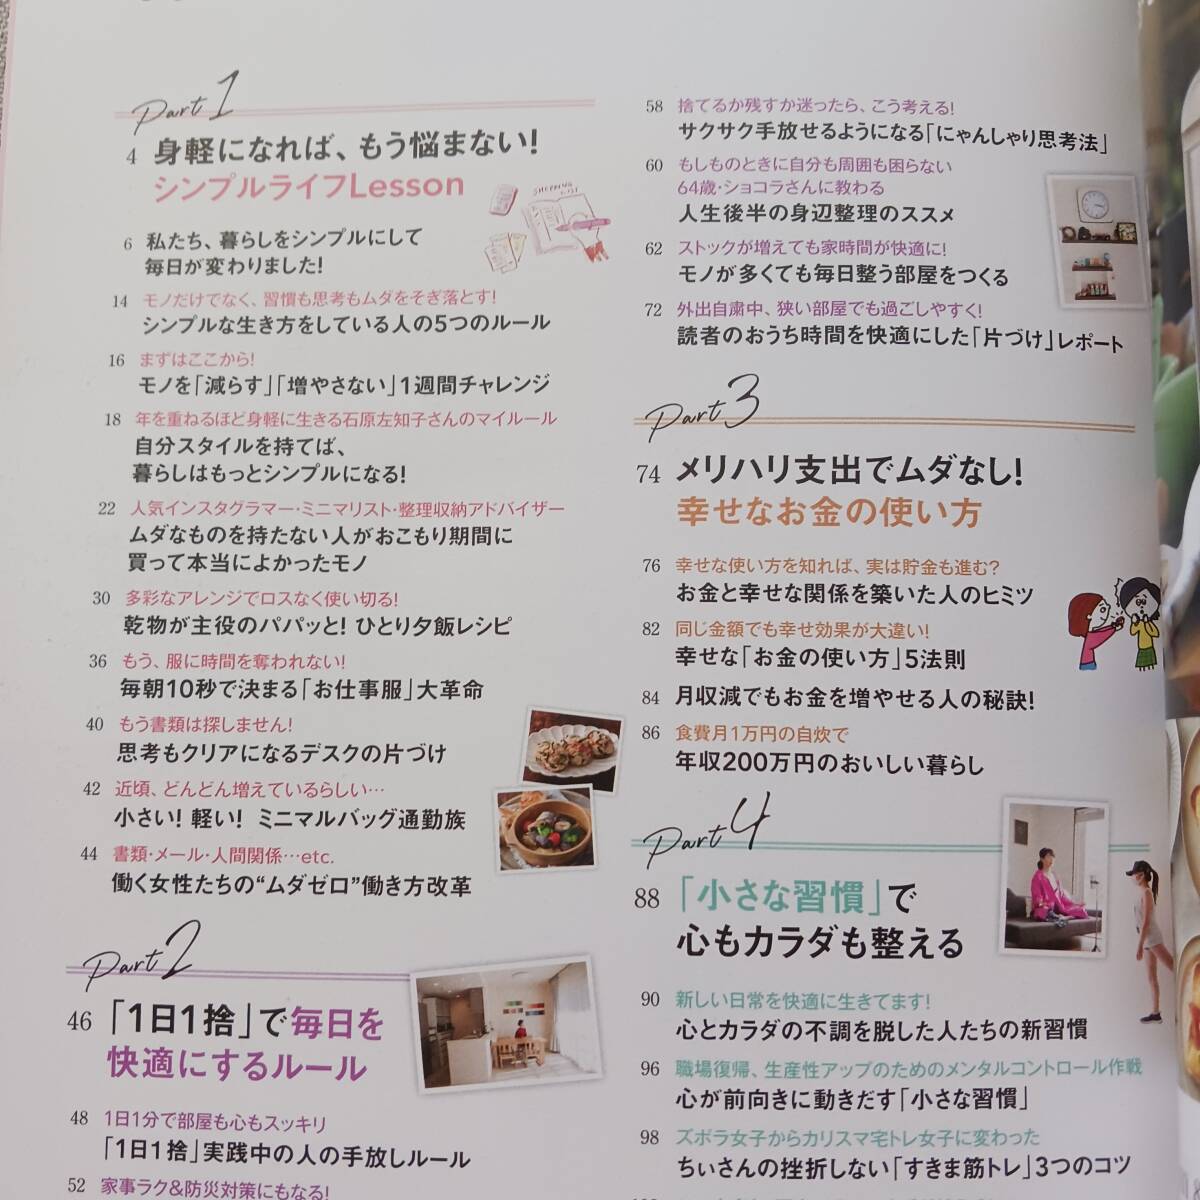 Part 1
4 身軽になれば、もう悩まない!
シンプルライフLesson
SHOPPING LIST
6 私たち、暮らしをシンプルにして
毎日が変わりました!
14 モノだけでなく、習慣も思考もムダをそぎ落とす!
シンプルな生き方をしている人の5つのルール
16 まずはここから!
モノを「減らす」「増やさない」1週間チャレンジ
18 年を重ねるほど身軽に生きる石原左知子さんのマイルール
自分スタイルを持てば、
暮らしはもっとシンプルになる!
22 人気インスタグラマー・ミニマリスト・整理収納アドバイザー
ムダなものを持たない人がおこもり期間に
買って本当によかったモノ
30 多彩なアレンジでロスなく使い切る!
乾物が主役のパパッと! ひとり夕飯レシピ
36 もう、服に時間を奪われない!
毎朝10秒で決まる「お仕事服」大革命
40 もう書類は探しません!
思考もクリアになるデスクの片づけ
42 近頃、どんどん増えているらしい…
小さい! 軽い! ミニマルバッグ通勤族
44 書類・メール・人間関係…etc.
働く女性たちの“ムダゼロ”働き方改革
Part 2
46 「1日1捨」で毎日を
快適にするルール
48 1日1分で部屋も心もスッキリ
「1日1捨」実践中の人の手放しルール
52 家事ラク&防災対策にもなる!
58 捨てるか残すか迷ったら、こう考える!
サクサク手放せるようになる「にゃんしゃり思考法」
60 もしものときに自分も周囲も困らない
64歳・ショコラさんに教わる
人生後半の身辺整理のススメ
62 ストックが増えても家時間が快適に!
モノが多くても毎日整う部屋をつくる
72 外出自粛中、狭い部屋でも過ごしやすく!
読者のおうち時間を快適にした「片づけ」レポート
Part 3
74 メリハリ支出でムダなし!
幸せなお金の使い方
76 幸せな使い方を知れば、実は貯金も進む?
お金と幸せな関係を築いた人のヒミツ
82 同じ金額でも幸せ効果が大違い!
幸せな「お金の使い方」5法則
84 月収減でもお金を増やせる人の秘訣!
86 食費月1万円の自炊で
年収200万円のおいしい暮らし
Part 4
88 「小さな習慣」で
心もカラダも整える
90 新しい日常を快適に生きてます!
心とカラダの不調を脱した人たちの新習慣
96 職場復帰、生産性アップのためのメンタルコントロール作戦
心が前向きに動きだす「小さな習慣」
98 ズボラ女子からカリスマ宅トレ女子に変わった
ちぃさんの挫折しない「すきま筋トレ」3つのコツ